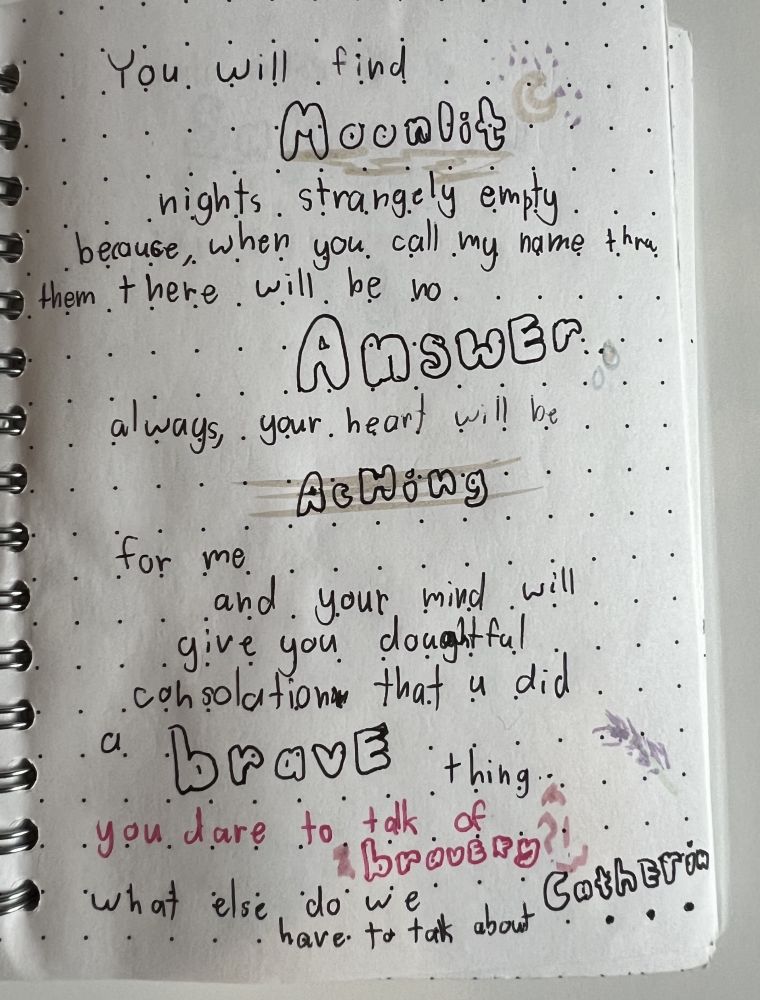 You will find
Moonlit
nights strangely empty
because, when you call my name thru
them there will be no
Answer
always, your heart will be
Aching
for me
and your mind will
give you doughtful
consolation that u did
a brave thing..
you dare to talk of
bravery?!
what else do we Catherin
have to talk about